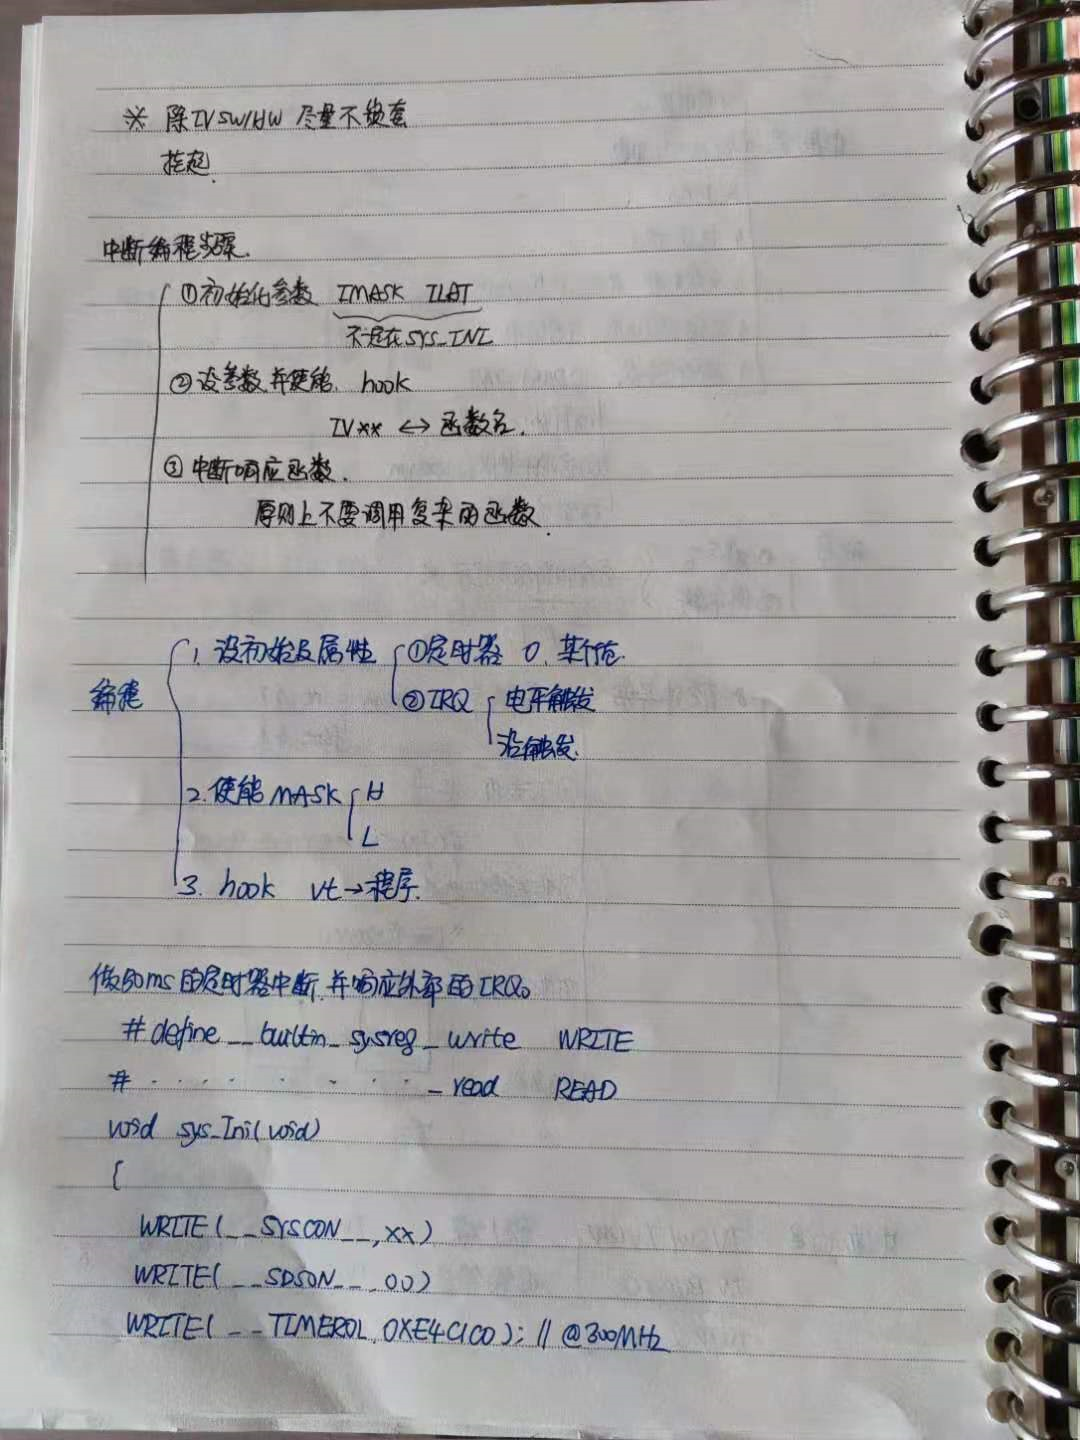 ※ 除IVSW/HW 尽量不嵌套
挂起.
中断编程步骤.
①初始化参数 IMASK ILAT
不一定在SYS_INI
②设参数并使能. hook
IV** ↔ 函数名.
③中断响应函数.
原则上不要调用复杂的函数.
编程
1. 设初始及属性 ①定时器 0. 某个值.
②IRQ 电平触发
沿触发.
2. 使能 MASK H
L
3. hook vt→程序.
做50ms的定时器中断,并响应外部的IRQ。
#define __builtin_sysreg_write WRITE
# · · · · · · · _read READ
void sys_Ini(void)
{
WRITE(__SYSCON__,xx)
WRITE(__SDSON__,00)
WRITE(__TIMER0L,0XE4C1C0); // @300MHz